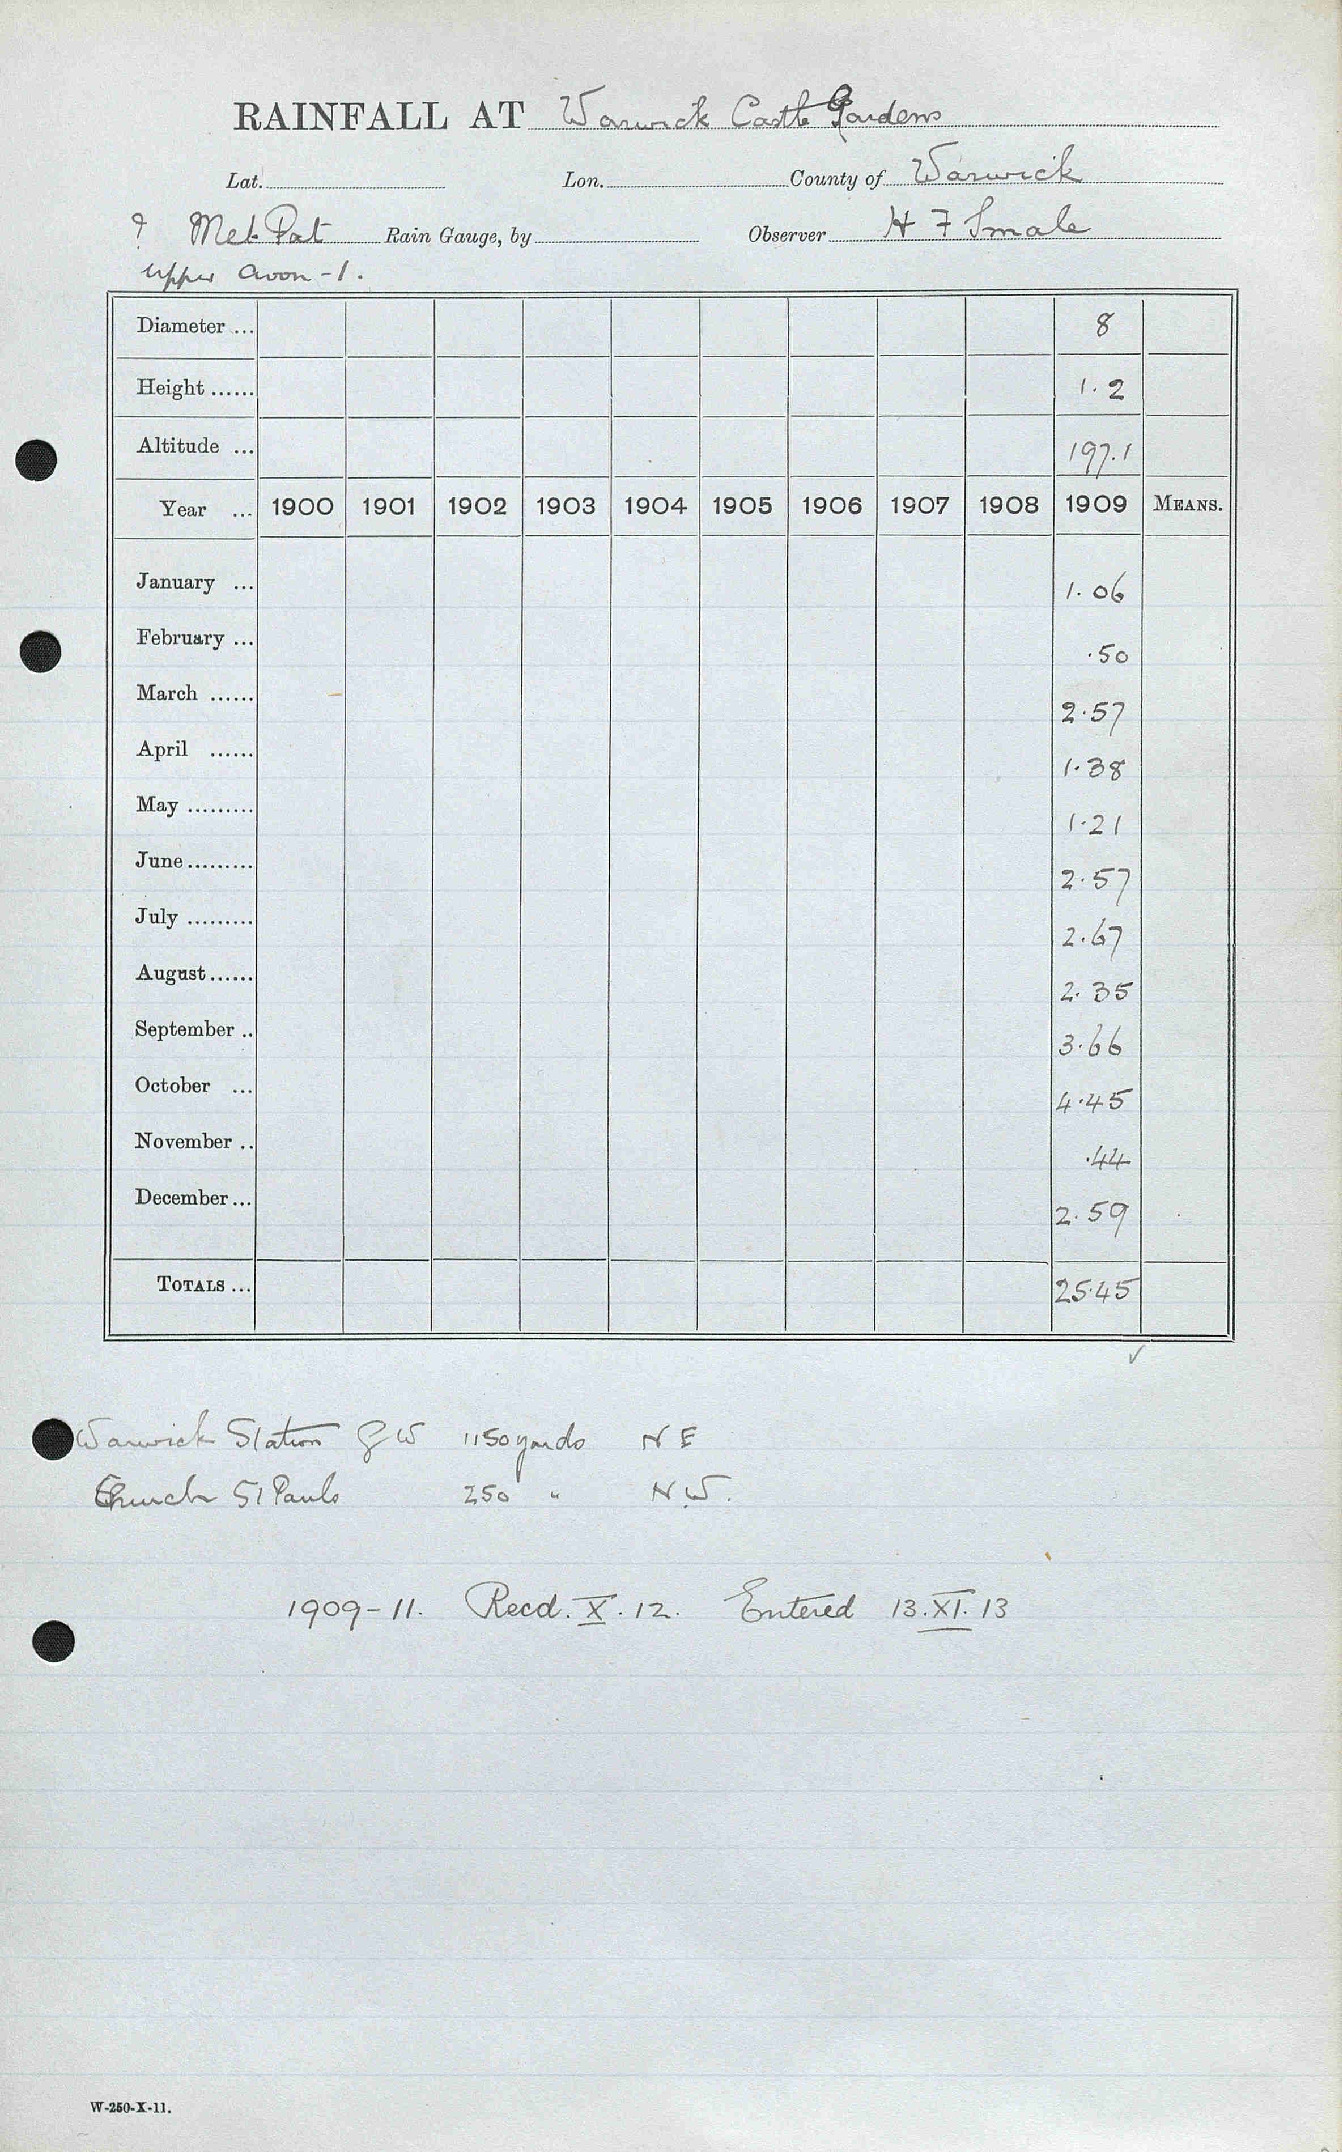 RAINFALL AT Warwick Castle Gardens
Lat. Lon. County of Warwick
? Met. Pat Rain Gauge, by Observer H F Smale
Upper Avon - 1.
Diameter ... 8
Height ...... 1.2
Altitude ... 197.1
Year ... 1900 1901 1902 1903 1904 1905 1906 1907 1908 1909 MEANS.
January ... 1.06
February ... .50
March ...... 2.57
April ...... 1.38
May ......... 1.21
June ......... 2.57
July ......... 2.67
August ...... 2.35
September .. 3.66
October ... 4.45
November .. .44
December ... 2.59
TOTALS ... 25.45
✓
Warwick Station G W 1150 yards N E
Church St Pauls 250 " N W.
1909-11. Recd. X. 12. Entered 13. XI. 13
W-250-X-11.